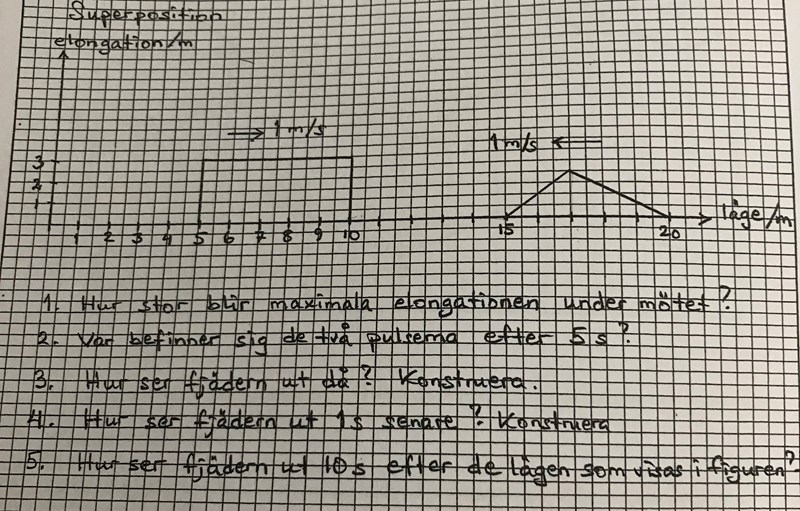 Superposition
elongation/m
→ 1 m/s
1 m/s ←
3
2
1
1 2 3 4 5 6 7 8 9 10 15 20
läge/m
1. Hur stor blir maximala elongationen under mötet?
2. Var befinner sig de två pulserna efter 5 s?
3. Hur ser fjädern ut då? Konstruera.
4. Hur ser fjädern ut 1s senare? Konstruera
5. Hur ser fjädern ut 10s efter de lägen som visas i figuren?